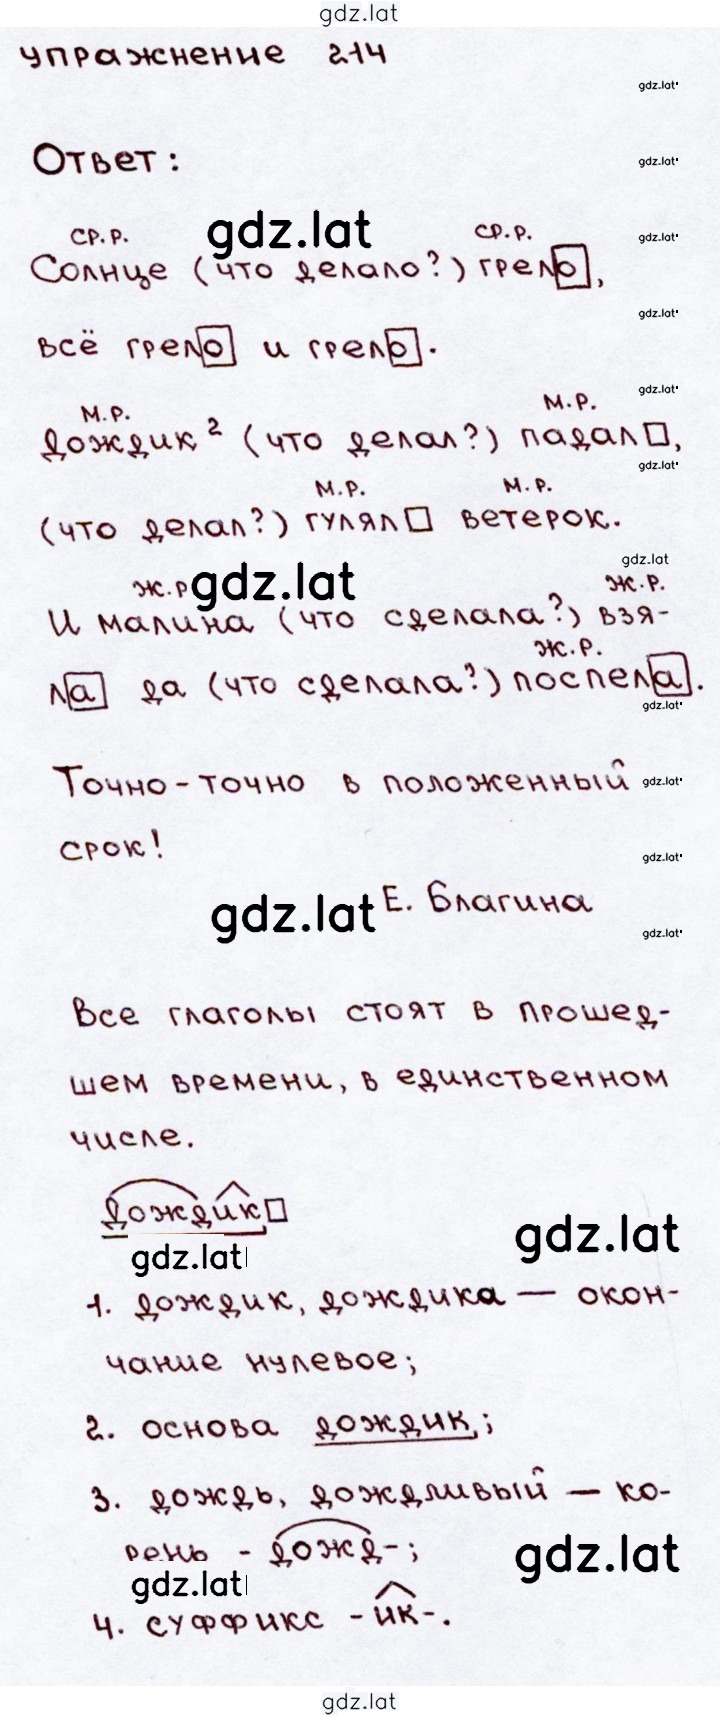 gdz.lat
упражнение 214
gdz.lat
Ответ:
gdz.lat
ср.р. gdz.lat ср.р.
gdz.lat
Солнце (что делало?) грело,
gdz.lat
всё грело и грело.
gdz.lat
м.р. м.р.
дождик² (что делал?) падал,
gdz.lat
м.р. м.р.
(что делал?) гулял ветерок.
gdz.lat
ж.р gdz.lat ж.р.
И малина (что сделала?) взя-
ж.р.
ла да (что сделала?) поспела.
gdz.lat
Точно-точно в положенный
gdz.lat
срок!
gdz.lat
gdz.lat Е. Благина
gdz.lat
Все глаголы стоят в прошед-
шем времени, в единственном
числе.
дождик
gdz.lat
gdz.lat
1. дождик, дождика — окон-
чание нулевое;
2. основа дождик;
3. дождь, дождливый — ко-
рень - дожд-;
gdz.lat
gdz.lat
4. суффикс -ик-.
gdz.lat